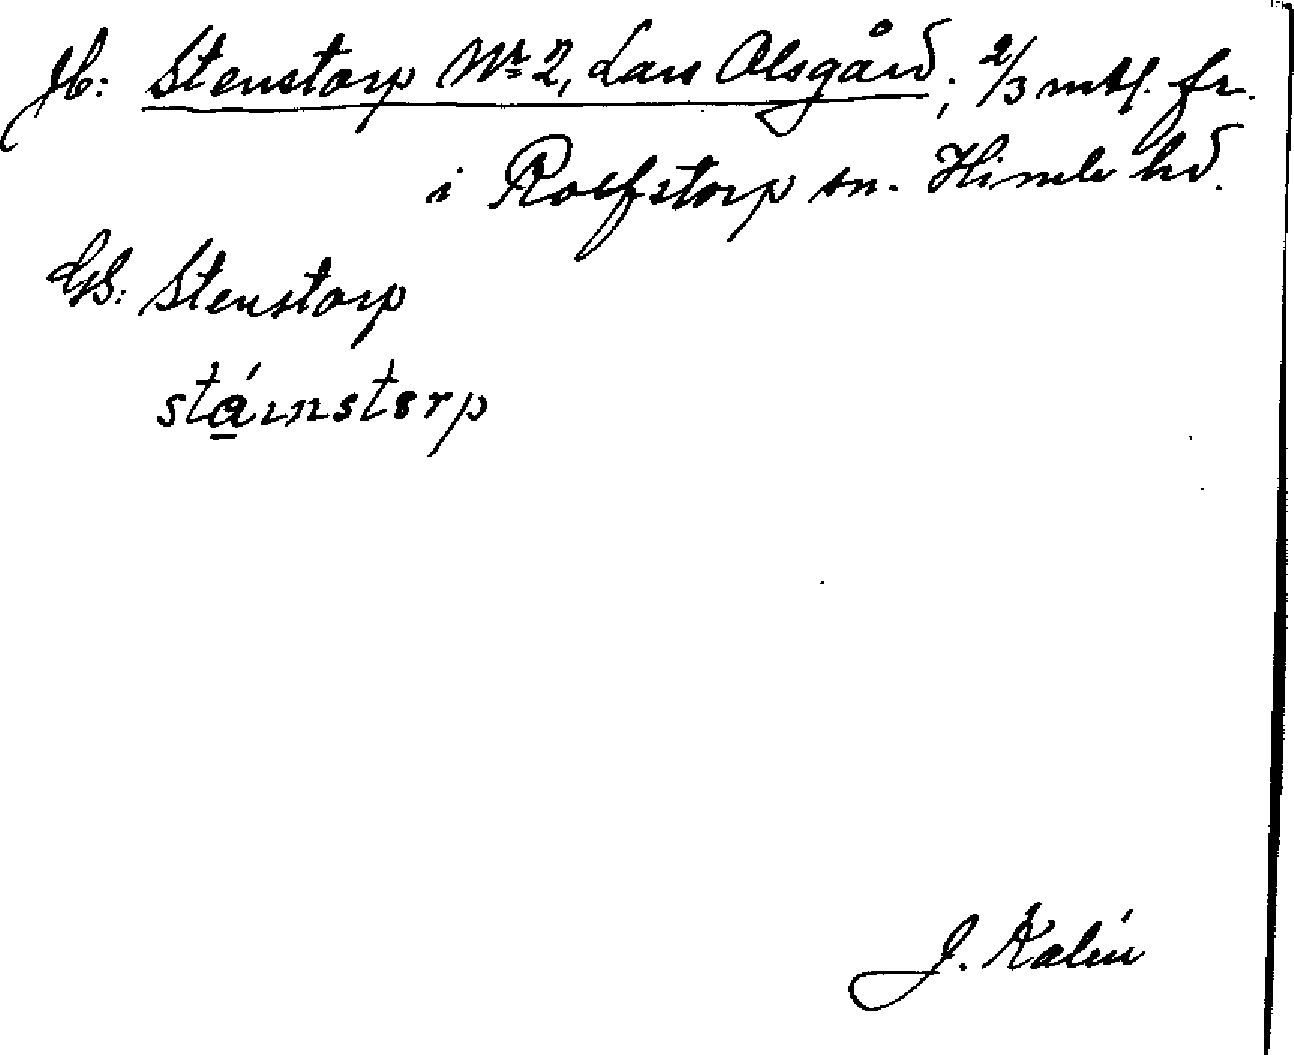 Jb: Stenstorp Nr 2, Lars Olsgård; 2/3 mtl. fr.
i Rolfstorp sn. Himle hd.
GS: Stenstorp
stáɪnstɵrp
J. Kalén